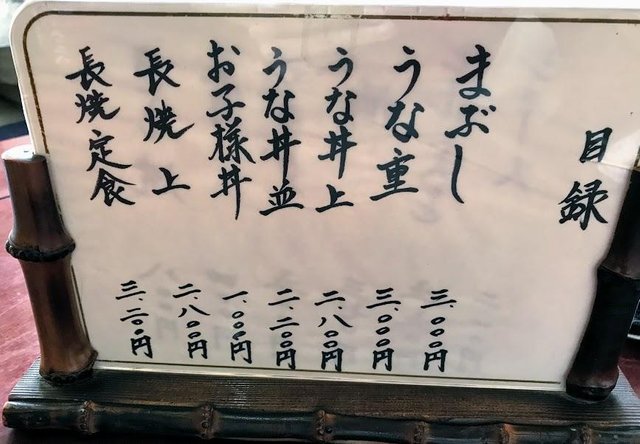 目録
まぶし 三、〇〇〇円
うな重 三、〇〇〇円
うな丼上 二、八〇〇円
うな丼並 二、二〇〇円
お子様丼 一、〇〇〇円
長焼上 二、八〇〇円
長焼定食 三、二〇〇円